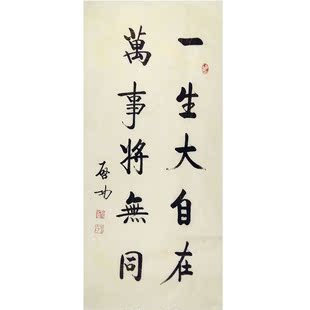 一生大自在
萬事將無同
啓功